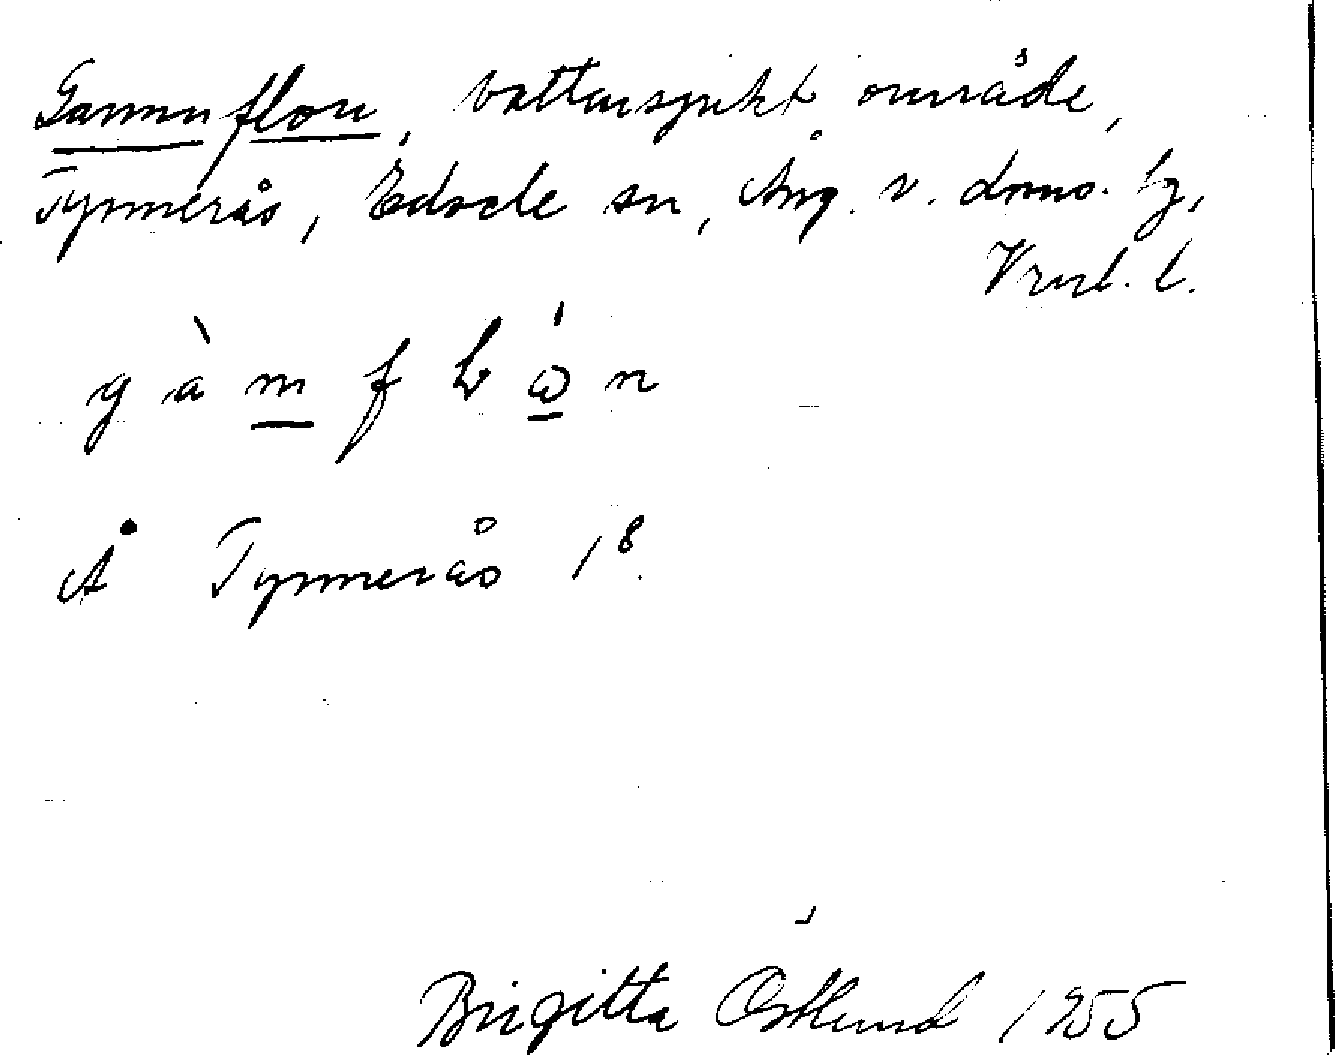 Gammflon, vattensjukt område,
Tynnerås, Edsele sn, Ång. v.
g à m f ł ó n
Å Tynnerås 1⁸.
Birgitta Östlund 1955